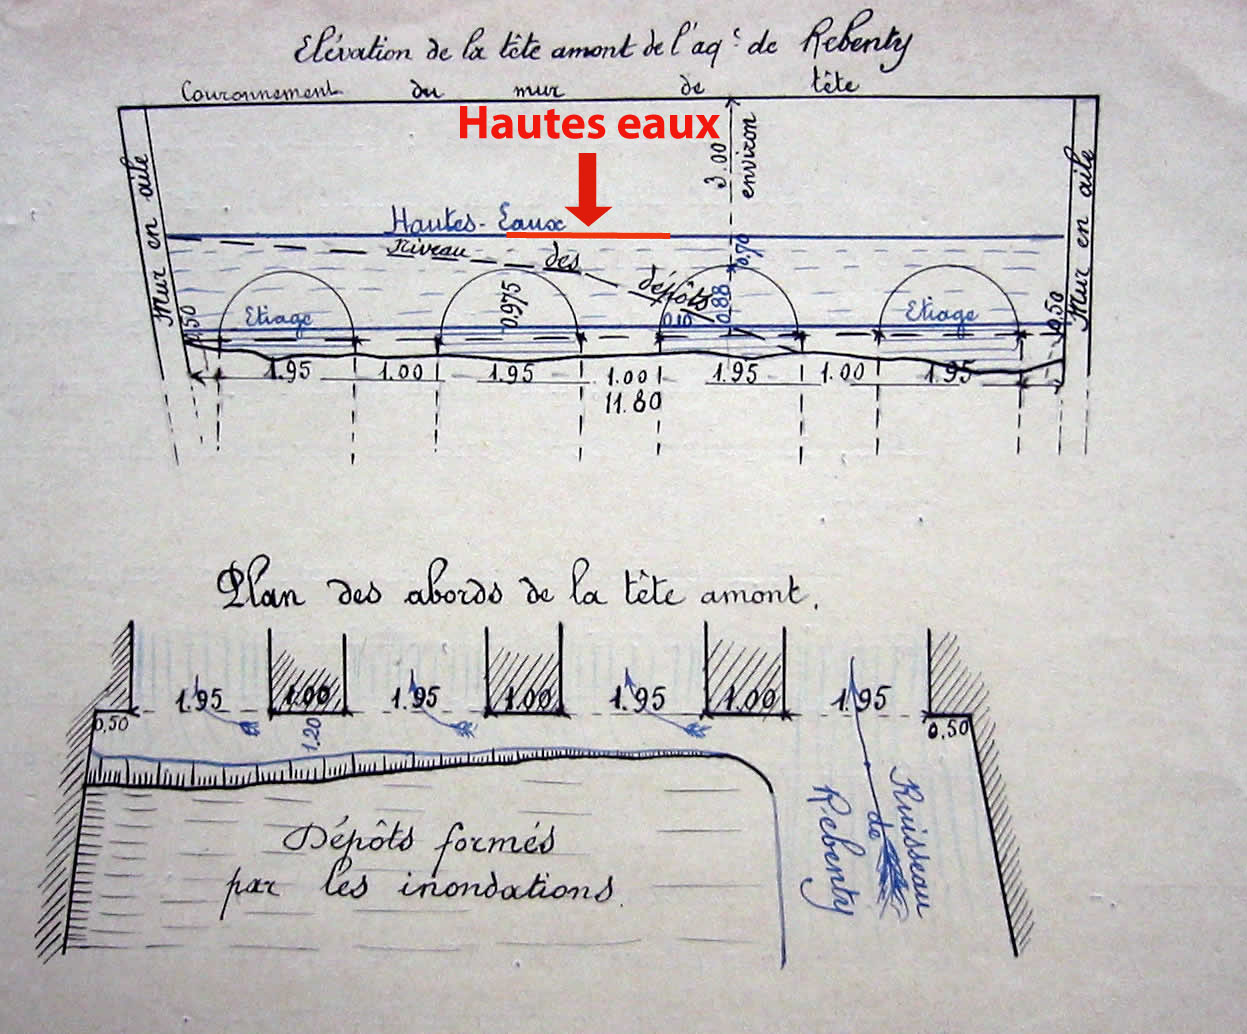 Elévation de la tête amont de l'aq.c de Rebenty
Couronnement du mur de tête
Hautes eaux
Mur en aile
3.00
environ
Mur en aile
Hautes-Eaux
Niveau des dépôts
0,70
0,88
0,50
Etiage
0,975
Etiage
0,50
1.95 1.00 1.95 1.00 1.95 1.00 1.95
11.80
Plan des abords de la tête amont.
1.95 1.00 1.95 1.00 1.95 1.00 1.95
0,50
1.20
0.50
Ruisseau
de
Rebenty
Dépôts formés
par les inondations.